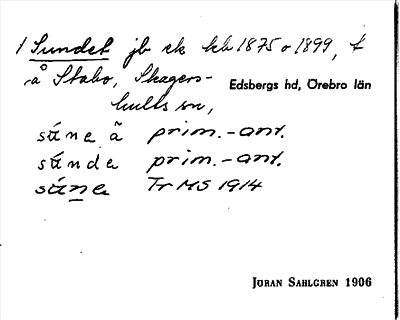 1 Sundet jb ek kb 1875 o 1899, t
å Stabo, Skagers-
hults sn,
Edsbergs hd, Örebro län
súne ã prim.-ant.
súnde prim.-ant.
súne Tr MS 1914
Jöran Sahlgren 1906